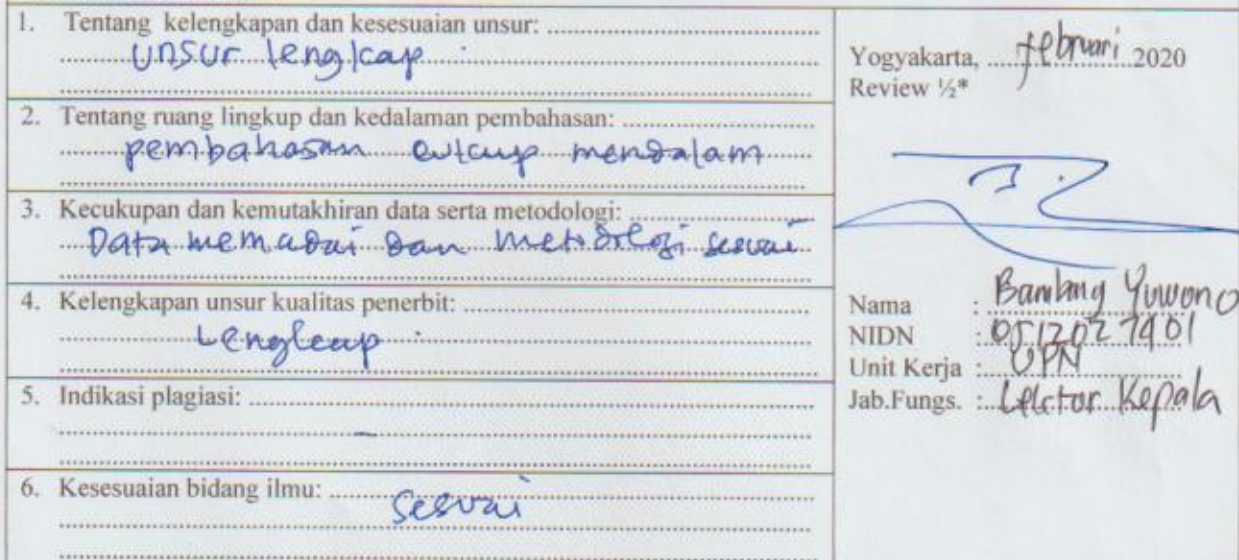 1. Tentang kelengkapan dan kesesuaian unsur: ........................
unsur lengkap .
2. Tentang ruang lingkup dan kedalaman pembahasan: ........................
pembahasan cukup mendalam
3. Kecukupan dan kemutakhiran data serta metodologi: ........................
Data memadai dan metodologi sesuai
4. Kelengkapan unsur kualitas penerbit: ........................
Lengkap .
5. Indikasi plagiasi: ........................
–
6. Kesesuaian bidang ilmu: ........................
sesuai
Yogyakarta, februari 2020
Review ½*
Nama : Bambang Yuwono
NIDN : 0512027401
Unit Kerja : UPN
Jab.Fungs. : Lektor Kepala